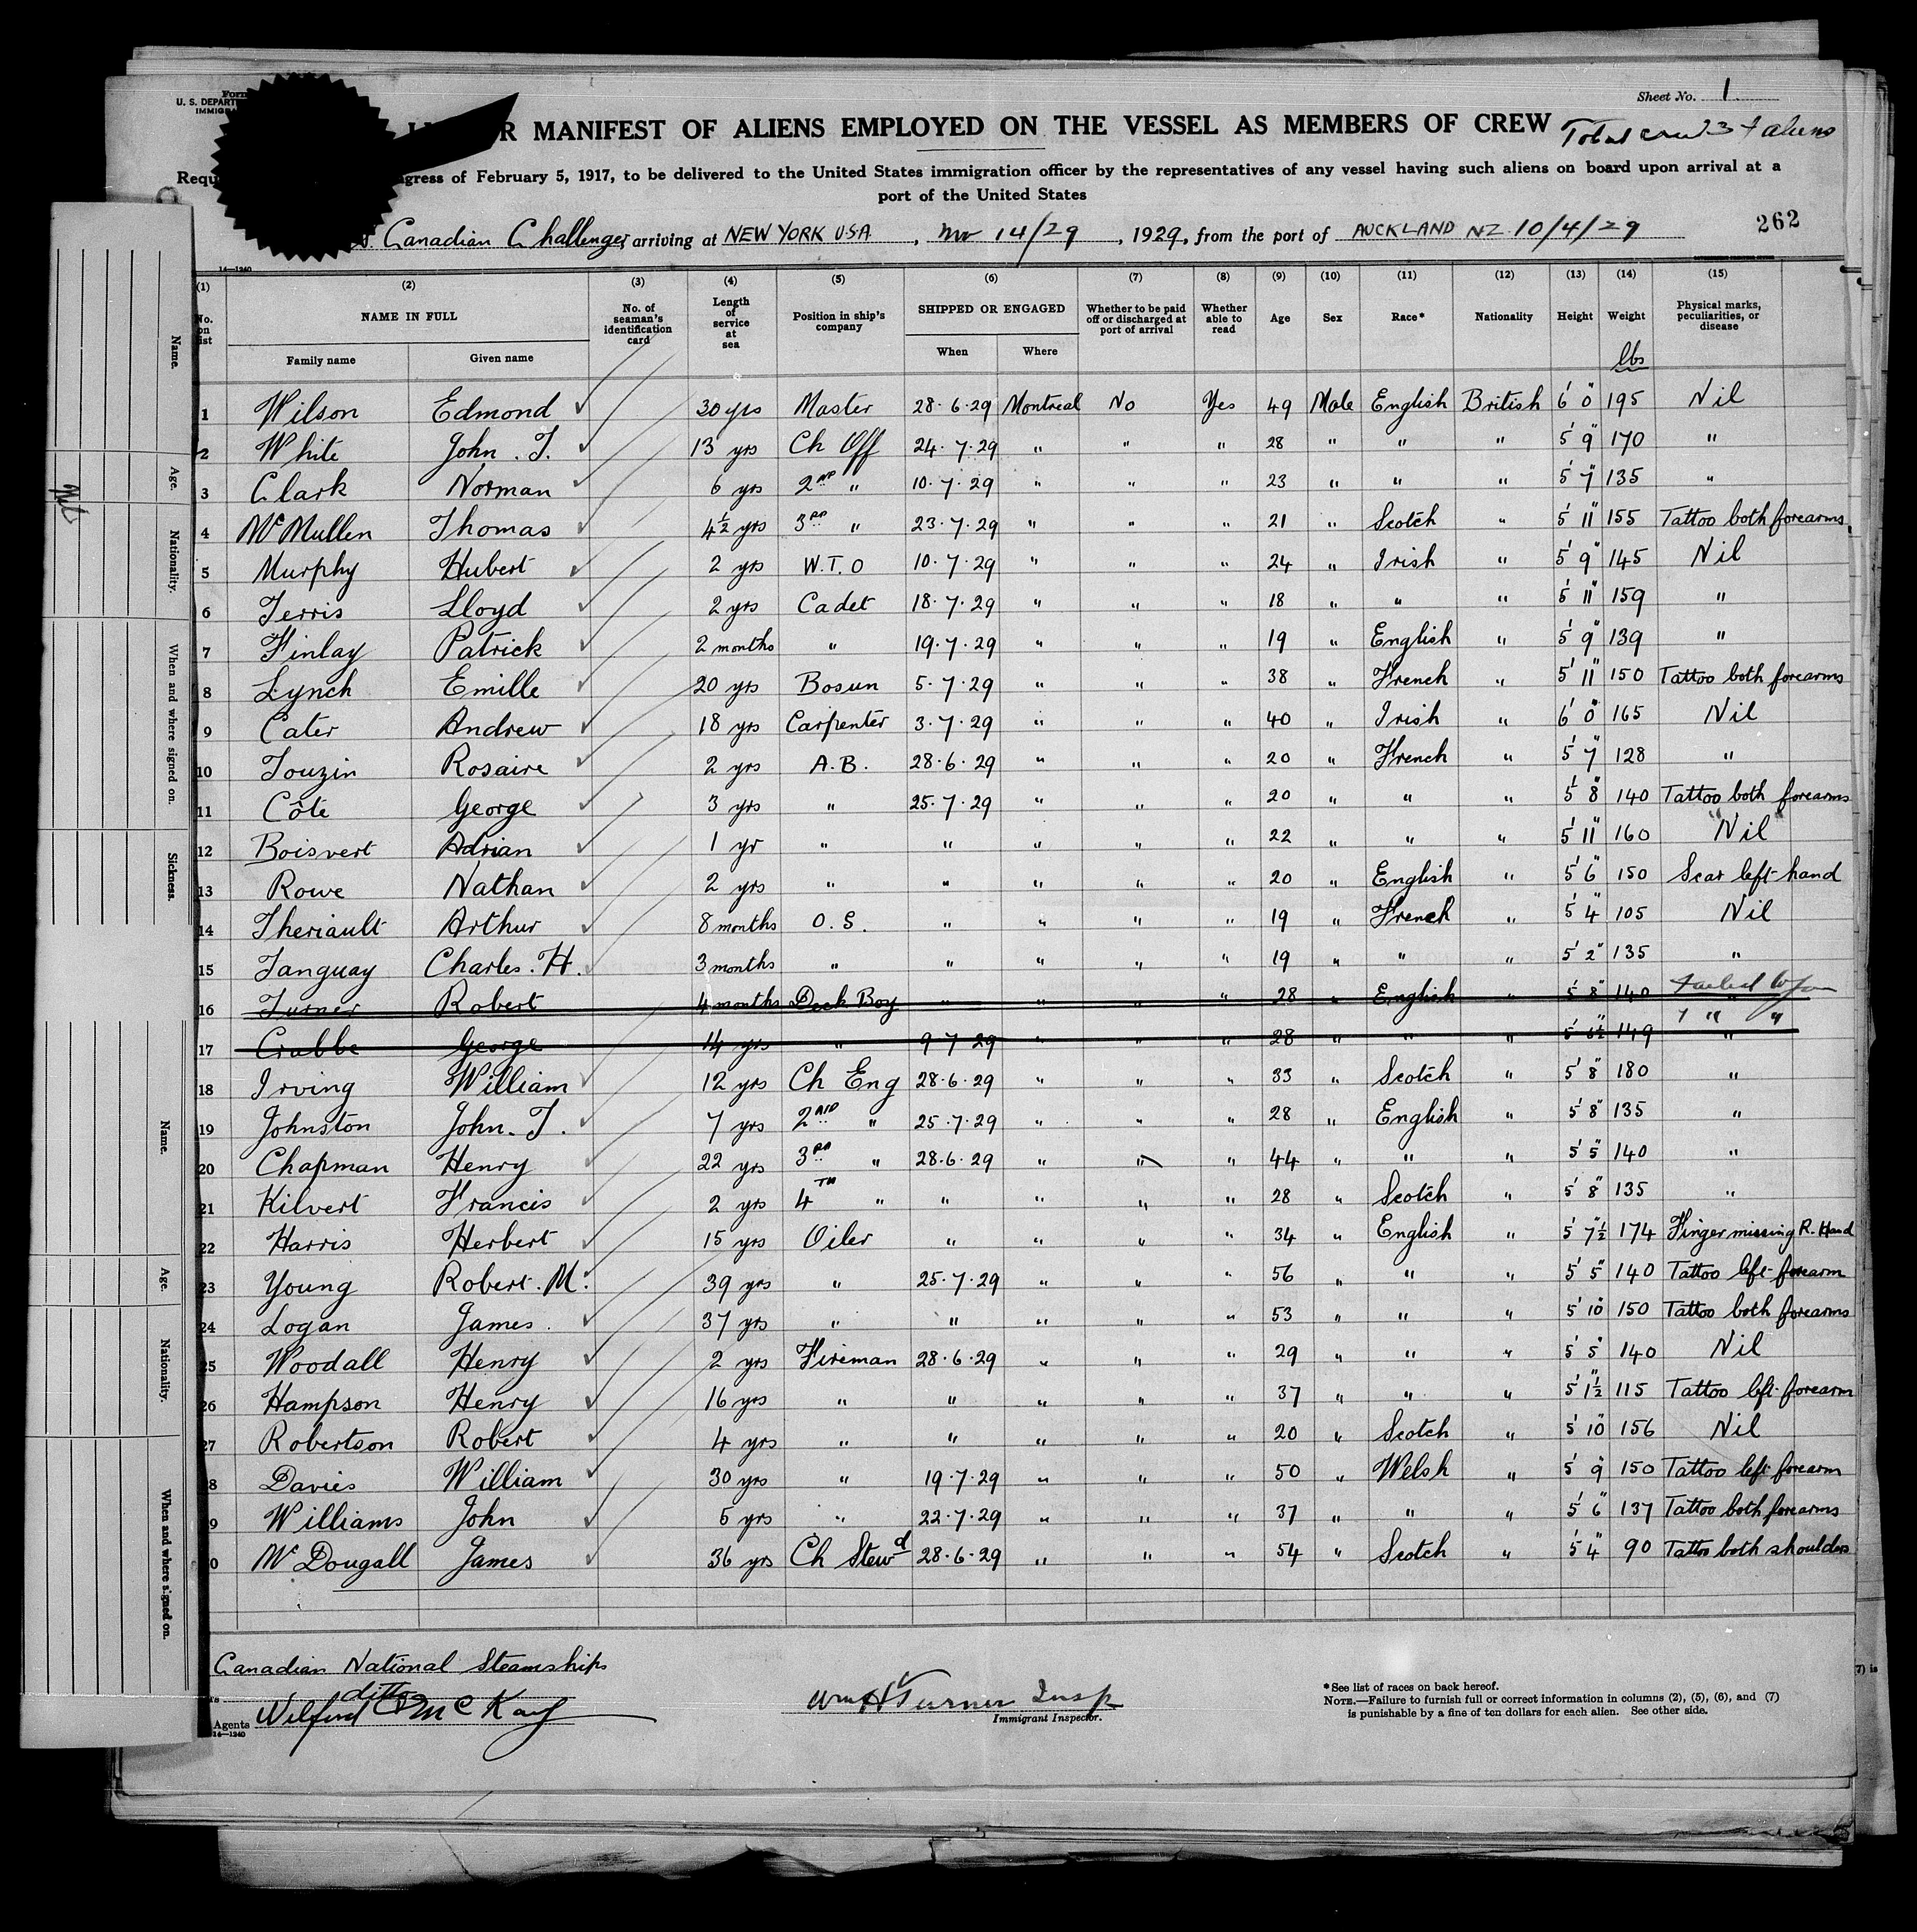 Form
U. S. DEPART
IMMIGRA
Sheet No. 1
MANIFEST OF ALIENS EMPLOYED ON THE VESSEL AS MEMBERS OF CREW
Total crew aliens
Requ gress of February 5, 1917, to be delivered to the United States immigration officer by the representatives of any vessel having such aliens on board upon arrival at a
port of the United States
262
Canadian Challenger, arriving at NEW YORK U.S.A, 14/29, 1929, from the port of AUCKLAND N.Z. 10/4/29
14—1240
(1) (2) (3) (4) (5) (6) (7) (8) (9) (10) (11) (12) (13) (14) (15)
No. on list NAME IN FULL Family name Given name No. of seaman's identification card Length of service at sea Position in ship's company SHIPPED OR ENGAGED When Where Whether to be paid off or discharged at port of arrival Whether able to read Age Sex Race* Nationality Height Weight Physical marks, peculiarities, or disease
lbs
1 Wilson Edmond ✓ 30 yrs Master 28.6.29 Montreal No Yes 49 Male English British 6' 0" 195 Nil
2 White John. T. ✓ 13 yrs Ch Off 24.7.29 " " " 28 " " " 5' 9" 170 "
3 Clark Norman ✓ 6 yrs 2ND " 10.7.29 " " " 23 " " " 5' 7" 135 "
4 McMullen Thomas ✓ 4½ yrs 3RD " 23.7.29 " " " 21 " Scotch " 5' 11" 155 Tattoo both forearms
5 Murphy Hubert ✓ 2 yrs W.T.O 10.7.29 " " " 24 " Irish " 5' 9" 145 Nil
6 Ferris Lloyd ✓ 2 yrs Cadet 18.7.29 " " " 18 " " " 5' 11" 159 "
7 Finlay Patrick ✓ 2 months " 19.7.29 " " " 19 " English " 5' 9" 139 "
8 Lynch Emille ✓ 20 yrs Bosun 5.7.29 " " " 38 " French " 5' 11" 150 Tattoo both forearms
9 Cater Andrew ✓ 18 yrs Carpenter 3.7.29 " " " 40 " Irish " 6' 0" 165 Nil
10 Touzin Rosaire ✓ 2 yrs A.B. 28.6.29 " " " 20 " French " 5' 7" 128 "
11 Côté George ✓ 3 yrs " 25.7.29 " " " 20 " " " 5' 8" 140 Tattoo both forearms
12 Boisvert Adrian ✓ 1 yr " " " " " 22 " " " 5' 11" 160 "Nil"
13 Rowe Nathan ✓ 2 yrs " " " " " 20 " English " 5' 6" 150 Scar left hand
14 Theriault Arthur ✓ 8 months O.S. " " " " 19 " French " 5' 4" 105 Nil
15 Tanguay Charles. H. ✓ 3 months " " " " " 19 " " " 5' 2" 135 "
16 Turner Robert 4 months Deck Boy " " " " 28 " English " 5' 8" 140 failed to join
17 Crabbe George 14 yrs " 9 7 29 " " " 28 " " " 5' 6½" 149 " " "
18 Irving William ✓ 12 yrs Ch Eng 28.6.29 " " " 33 " Scotch " 5' 8" 180 "
19 Johnston John. T. ✓ 7 yrs 2ND " 25.7.29 " " " 28 " English " 5' 8" 135 "
20 Chapman Henry ✓ 22 yrs 3RD " 28.6.29 " " " 44 " " " 5' 5" 140 "
21 Kilvert Francis ✓ 2 yrs 4TH " " " " " 28 " Scotch " 5' 8" 135 "
22 Harris Herbert ✓ 15 yrs Oiler " " " " 34 " English " 5' 7½" 174 Finger missing R. Hand
23 Young Robert. M. ✓ 39 yrs " 25.7.29 " " " 56 " " " 5' 5" 140 Tattoo left forearm
24 Logan James. ✓ 37 yrs " " " " " 53 " " " 5' 10" 150 Tattoo both forearms
25 Woodall Henry ✓ 2 yrs Fireman 28.6.29 " " " 29 " " " 5' 5" 140 Nil
26 Hampson Henry ✓ 16 yrs " " " " " 37 " " " 5' 1½" 115 Tattoo left forearm
27 Robertson Robert ✓ 4 yrs " " " " " 20 " Scotch " 5' 10" 156 Nil
8 Davies William ✓ 30 yrs " 19.7.29 " " " 50 " Welsh " 5' 9" 150 Tattoo left forearm
9 Williams John ✓ 5 yrs " 22.7.29 " " " 37 " " " 5' 6" 137 Tattoo both forearms
0 McDougall James ✓ 36 yrs Ch Stewd 28.6.29 " " " 54 " Scotch " 5' 4" 90 Tattoo both shoulders
Canadian National Steamships
ditto
Agents Wilfred McKay
14—1240
Wm H Turner Insp
Immigrant Inspector.
*See list of races on back hereof.
NOTE.—Failure to furnish full or correct information in columns (2), (5), (6), and (7)
is punishable by a fine of ten dollars for each alien. See other side.
7) is
Name.
Age.
Nationality.
When and where signed on.
Sickness.
Name.
Age.
Nationality.
When and where signed on.